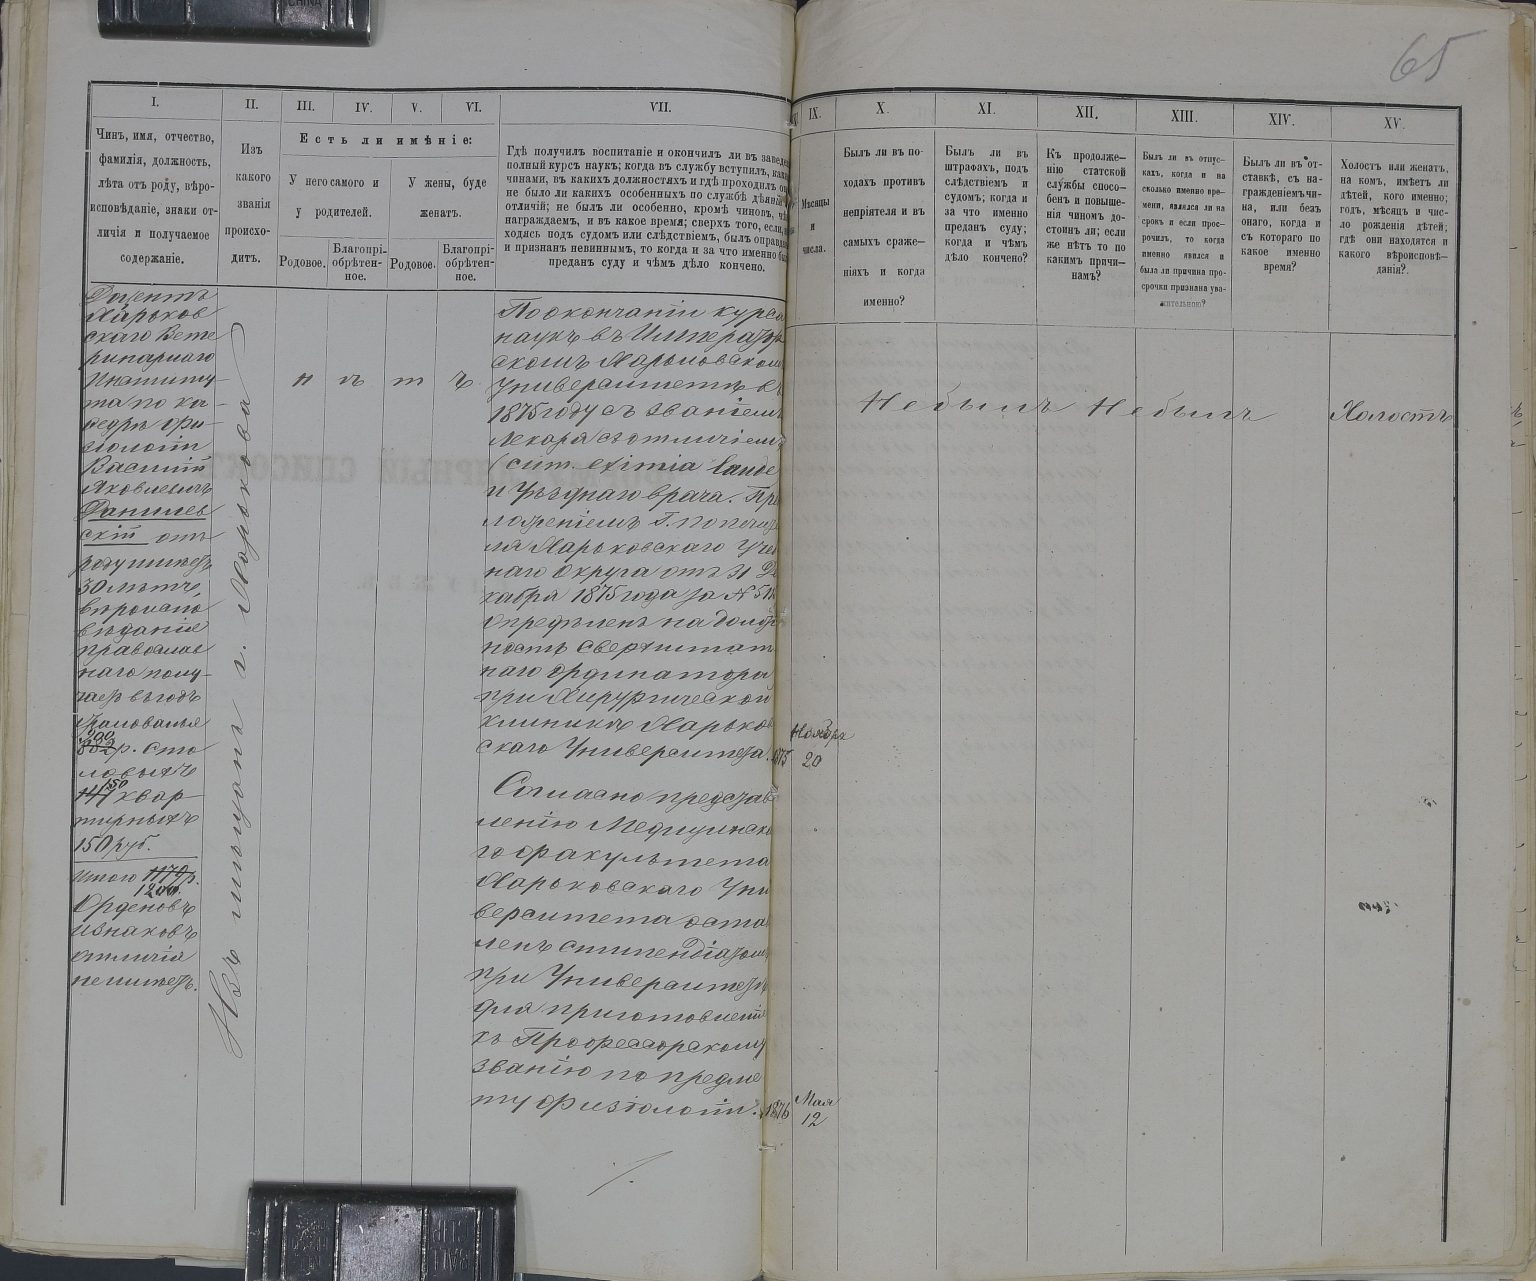 65
I.
II.
III.
IV.
V.
VI.
VII.
IX.
X.
XI.
XII.
XIII.
XIV.
XV.
Чинъ, имя, отчество,
фамилія, должность,
лѣта отъ роду, вѣро-
исповѣданіе, знаки от-
личія и получаемое
содержаніе.
Изъ
какого
званія
происхо-
дитъ.
Есть ли имѣніе:
У него самого и
у родителей.
У жены, буде
женатъ.
Родовое.
Благопрі-
обрѣтен-
ное.
Родовое.
Благопрі-
обрѣтен-
ное.
Гдѣ получилъ воспитаніе и окончилъ ли въ
полный курсъ наукъ; когда въ службу вступилъ,
чинами, въ какихъ должностяхъ и гдѣ проходилъ
не было ли какихъ особенныхъ по службѣ дѣяній
отличій; не былъ ли особенно, кромѣ чиновъ,
награждаемъ, и въ какое время; сверхъ того, если,
ходясь подъ судомъ или слѣдствіемъ, былъ
и признанъ невиннымъ, то когда и за что именно
преданъ суду и чѣмъ дѣло кончено.
Мѣсяцы
и
числа.
Былъ ли въ по-
ходахъ противъ
непріятеля и въ
самыхъ сраже-
ніяхъ и когда
именно?
Былъ ли въ
штрафахъ, подъ
слѣдствіемъ и
судомъ; когда и
за что именно
преданъ суду;
когда и чѣмъ
дѣло кончено?
Къ продолже-
нію статской
службы спосо-
бенъ и повыше-
нія чиномъ до-
стоинъ ли; если
же нѣтъ то по
какимъ причи-
намъ?
Былъ ли въ отпус-
кахъ, когда и на
сколько именно вре-
мени, являлся ли на
срокъ и если прос-
рочилъ, то когда
именно явился и
была ли причина про-
срочки признана ува-
жительною?
Былъ ли въ от-
ставкѣ, съ на-
гражденіемъ чи-
на, или безъ
онаго, когда и
съ котораго по
какое именно
время?
Холостъ или женатъ,
на комъ, имѣетъ ли
дѣтей, кого именно;
годъ, мѣсяцъ и чис-
ло рожденія дѣтей;
гдѣ они находятся и
какого вѣроисповѣ-
данія?
Доцентъ
Харьков
скаго Вете
ринарнаго
Институ-
та по ка-
ѳедрѣ фи-
зіологіи
Василій
Яковлевичъ
Данилев
скій отъ
роду имѣетъ
30 лѣтъ,
вѣроиспо
вѣданія
православ
наго полу-
чаетъ въ годъ
жалованья
900
882 р. сто
ловыхъ
150
147 квар-
тирныхъ
150 руб.
Итого 1179 р.
1200.
Орденовъ
и знаковъ
отличія
не имѣетъ.
Изъ мѣщанъ г. Харькова
н ѣ т ъ
По окончаніи курса
наукъ въ Император
скомъ Харьковскомъ
Университетѣ въ
1875 году съ званіемъ
Лекаря съ отличіемъ
(cum eximia laude
и Уѣзднаго врача. Пред
ложеніемъ Г. попечите
ля Харьковскаго Учеб
наго Округа отъ 31 Де
кабря 1875 года за №
опредѣленъ на долж
ность сверхштат
наго ординатора
при Хирургической
клиникѣ Харьков
скаго Университета. 1875
Ноября
20
Согласно представ
ленію Медицинска
го факультета
Харьковскаго Уни
верситета остав
ленъ стипендіатомъ
при Университетѣ
для приготовленія
къ Профессорскому
званію по предме
ту физіологіи. 1876
Мая
12
Не былъ
Не былъ
Холостъ